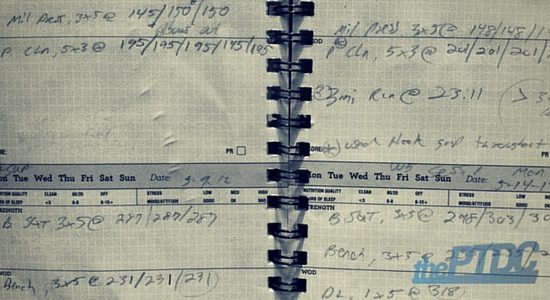 mil Press, 3x5 @ 145/150/150
P Cln, 5x3 @ 195/195/195/195/195
PR
on Tue Wed Thu Fri Sat Sun Date: 5-9-12
NUTRITION QUALITY CLEAN 80/20 OFF STRESS LOW MED HIGH
HOURS OF SLEEP <5 6-8 8-10+ MOOD/ATTITUDE GOOD OK BAD
STRENGTH
B SQT 3x5 @ 287/287/287
WOD
Bench, 3x5 @ 231/231/231
mil Press 3x5 @ 148/148/1
WOD
P Cln, 5x3 @ 201/201/201/
3mi Run @ 23:11
SCORE used Hook grip throughout
on Tue Wed Thu Fri Sat Sun Date: 5-14-1
NUTRITION QUALITY CLEAN 80/20 OFF STRESS LOW MED
HOURS OF SLEEP <5 6-8 8-10+ MOOD/ATTITUDE GOOD OK
STRENGTH
B SQT, 3x5 @ 298/303/30
Bench, 3x5 @
WOD
DL, 1x5 @ 318
thePTDC